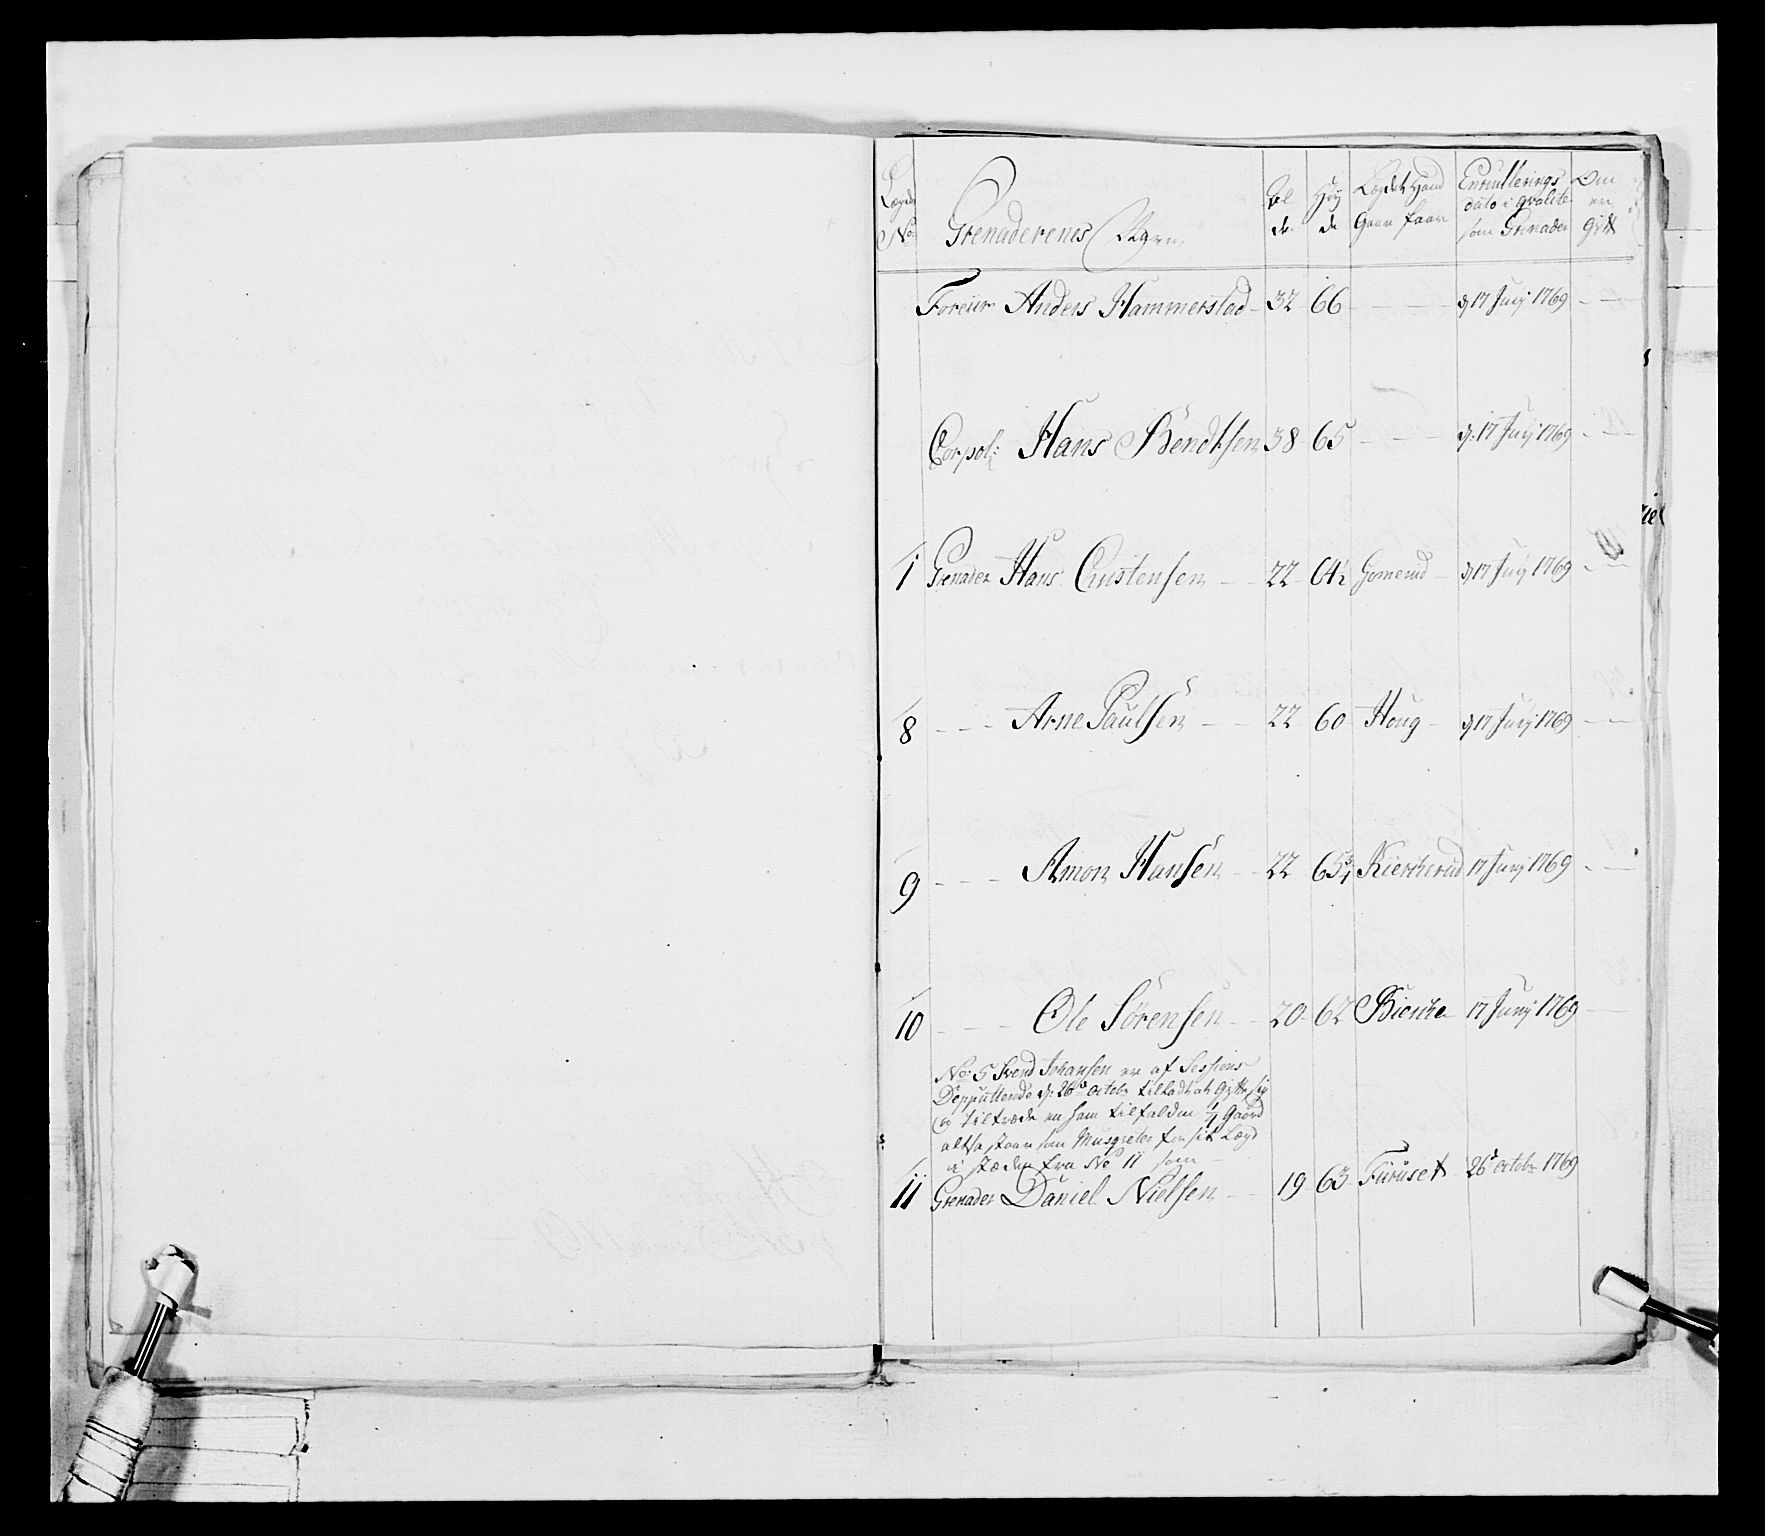 Lægds No: Grenaderenes Navn Al der Høy de Lægdets Hand Gaar faar Enrullerings dato i qvalite som Grenader Om er gift
Foreer Anders Hammerstad 32 66 d 17 Junj 1769
Corpol: Hans Bendtsen 38 65 d: 17 Junj 1769
1 Grenader Hans Christensen 22 64½ Gomerud d 17 Junj 1769
8 Arne Paulsen 22 60 Houg d 17 Junj 1769
9 Amon Hansen 22 65¾ Kierkerud 17 Junj 1769
10 Ole Sørensen 20 62 Bierke 17 Junj 1769
No: 5 Svend Johansen er af Sessions
Deputterede d: 26de octobr tilladt at Gifte sig
og tiltræde en ham tilfalden ¼ Gaard
altsa staar som Musqveter for sit Lægd
i stæden fra No 11 som
11 Grenader Daniel Nielsen 19 63 Furuset 26d octobr 1769